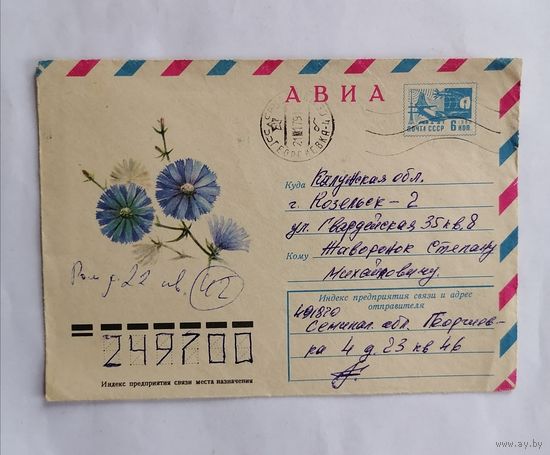 АВИА
ПОЧТА СССР 6 КОП.
ГЕОРГИЕВКА-4
Куда Калужская обл.
г. Козельск-2
ул. Гвардейская 35 кв, 8
Кому Жаворонок Степану
Михайловичу.
Индекс предприятия связи и адрес
отправителя
491870
Семипал. обл. Георгиев-
ка 4 д. 23 кв 46
д. 22 кв. 42
249700
Индекс предприятия связи места назначения
www.ay.by